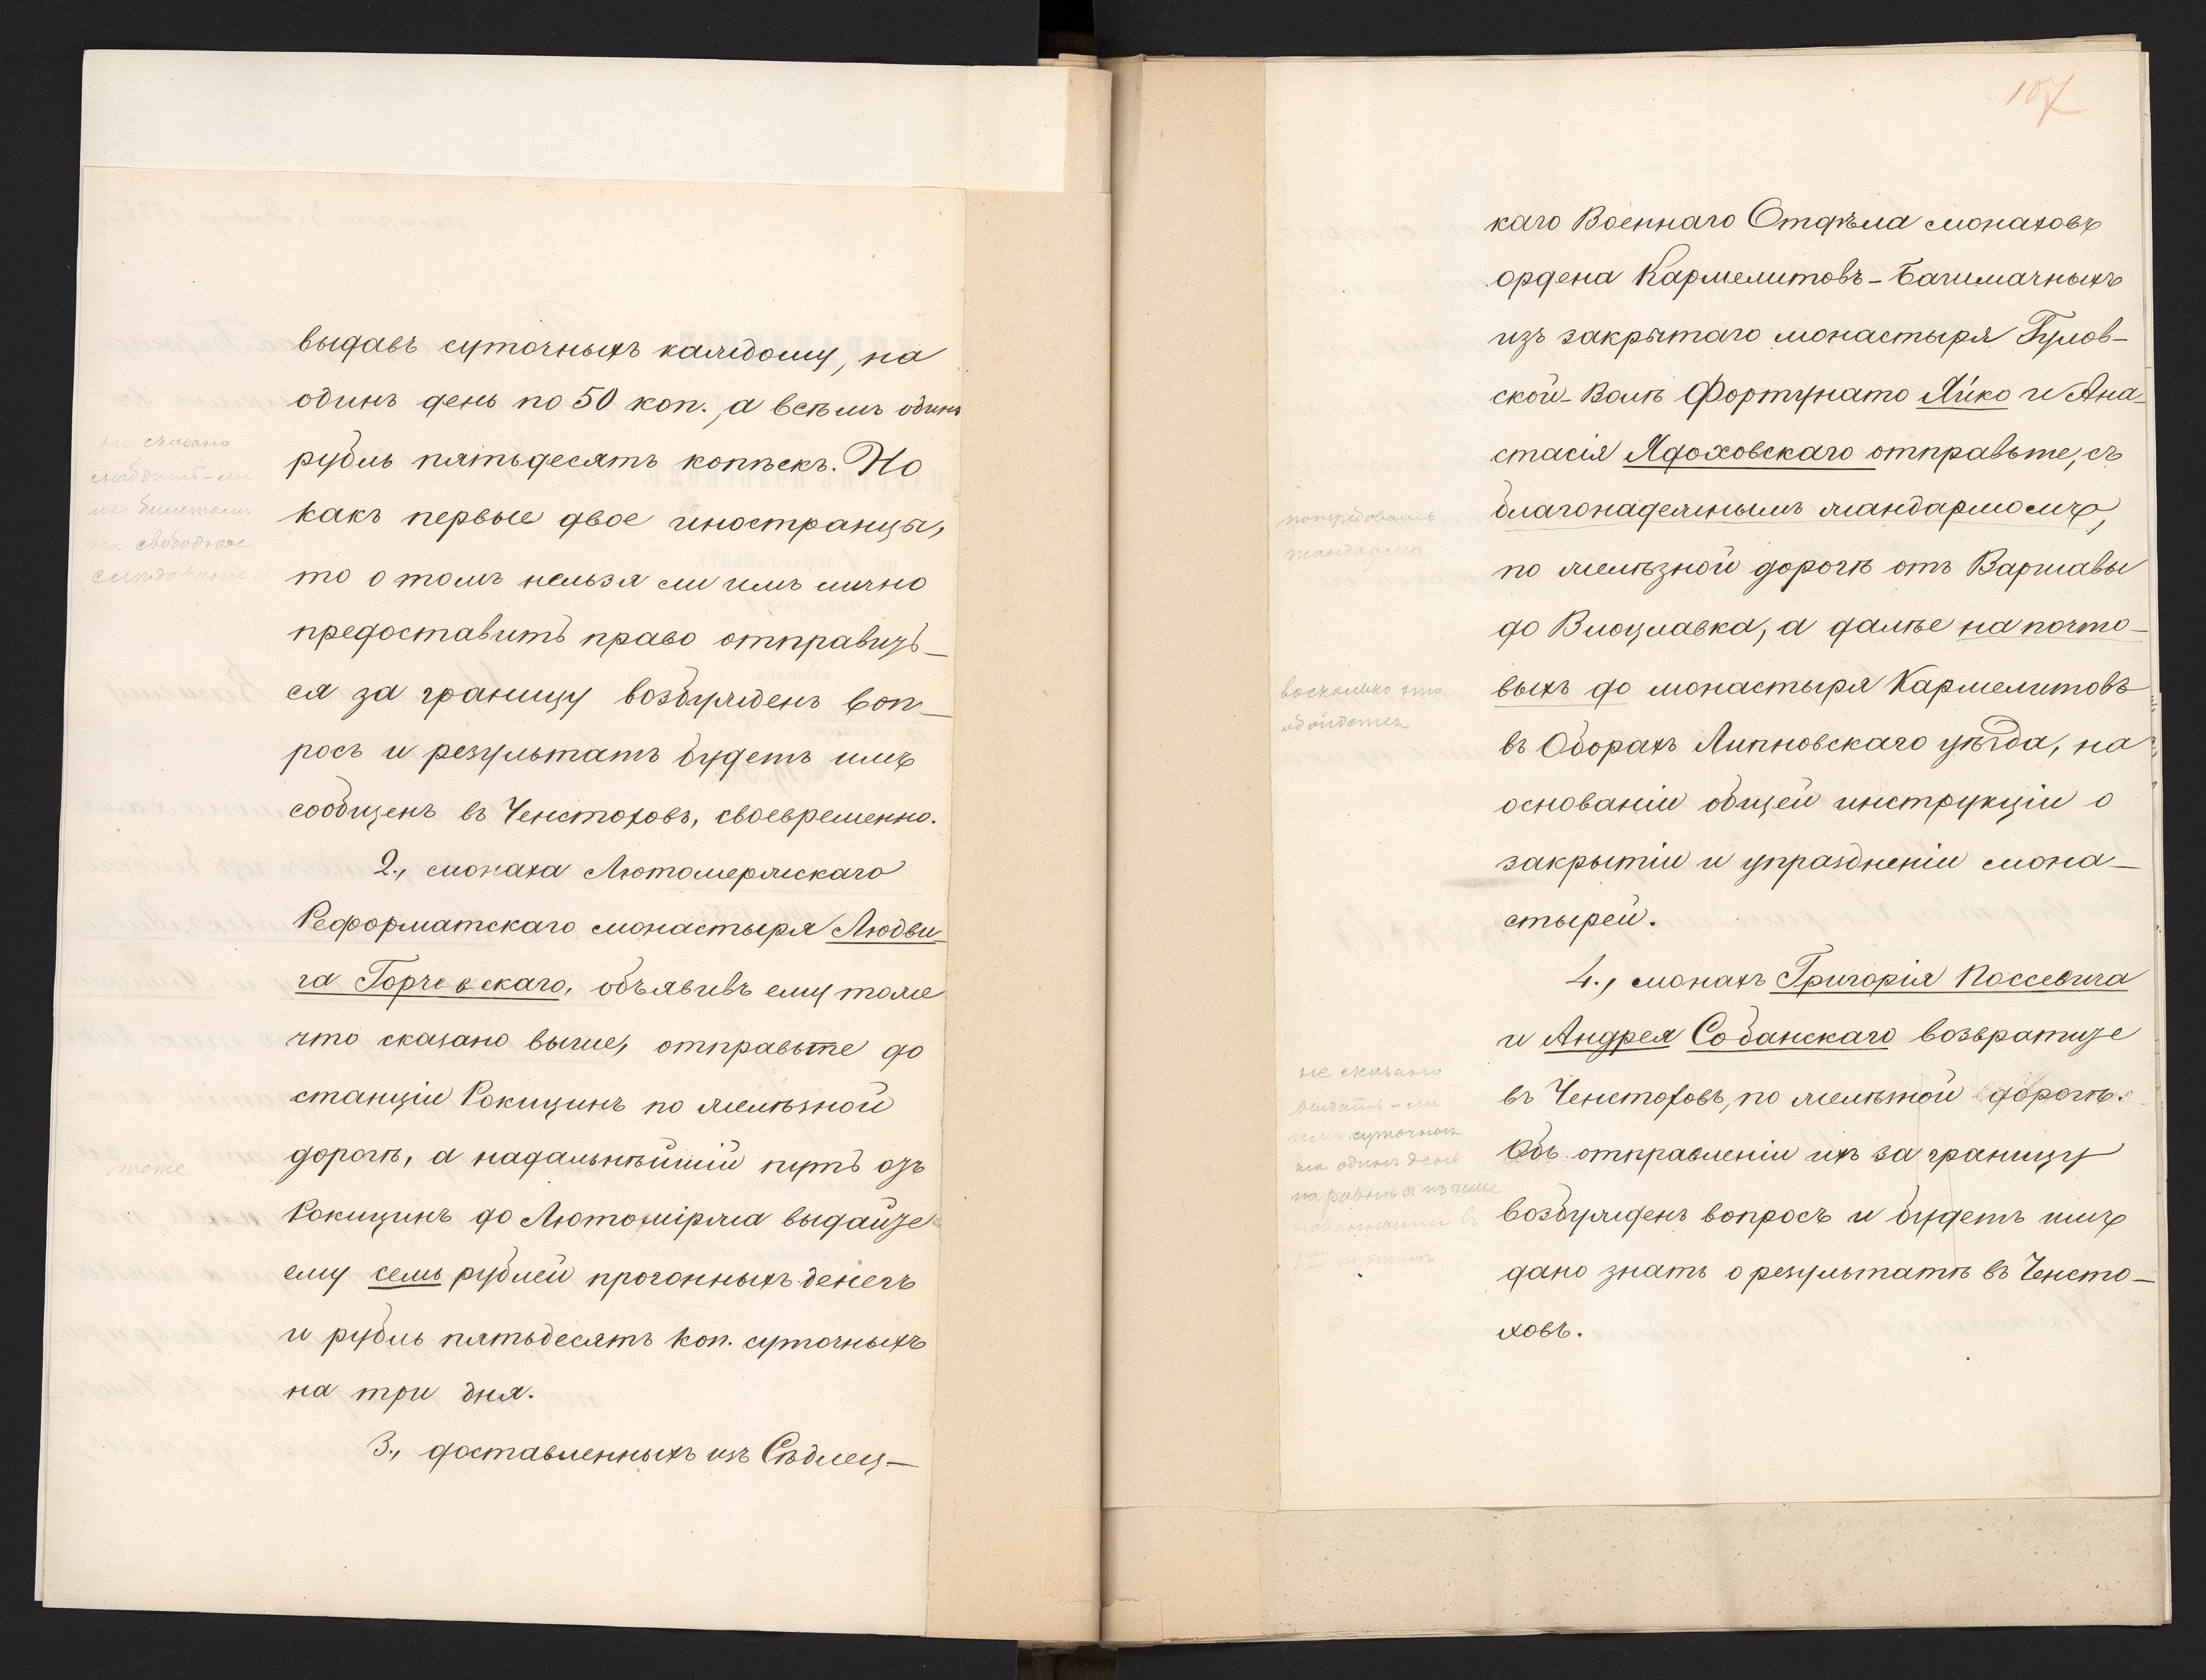 выдавъ суточныхъ каждому, на
одинъ день по 50 коп., а всѣмъ одинъ
рубль пятьдесятъ копѣекъ. Но
какъ первые двое иностранцы,
то о томъ нельзя ли имъ лично
предоставить право отправить-
ся за границу возбужденъ воп-
росъ и результатъ будетъ имъ
сообщенъ въ Ченстоховъ, своевременно.
2., монаха Лютомержскаго
Реформатскаго монастыря Людви-
га Горчевскаго, объявивъ ему тоже
что сказано выше, отправьте до
станціи Рокицинъ по желѣзной
дорогѣ, а надальнѣйшій путь отъ
Рокицинъ до Лютомiржа выдайте
ему семь рублей прогонныхъ денегъ
и рубль пятьдесятъ коп. суточныхъ
на три дня.
3., доставленныхъ изъ Сѣдлец-
не сказано
снабдить-ли
ихъ билетомъ
на свободное
слѣдованіе.
тоже
107
каго Военнаго Отдѣла монаховъ
ордена Кармелитовъ-Башмачныхъ
изъ закрытаго монастыря Гулов-
ской-Воли Фортунато Яйко и Ана-
стасія Ядоховскаго отправьте, съ
благонадежнымъ жандармомъ,
по желѣзной дорогѣ отъ Варшавы
до Влоцлавка, а далѣе на почто-
выхъ до монастыря Кармелитовъ
въ Оборахъ Липновскаго уѣзда, на
основаніи общей инструкціи о
закрытіи и упраздненіи мона-
стырей.
4., монахъ Григорія Поссевича
и Андрея Собанскаго возвратите
въ Ченстоховъ, по желѣзной дорогѣ.
Объ отправленіи ихъ за границу
возбужденъ вопросъ и будетъ имъ
дано знать о результатѣ въ Ченсто-
ховъ.
потребовать
жандарма
восколько это
обойдется
не сказано
выдать-ли
имъ суточныя
на одинъ день